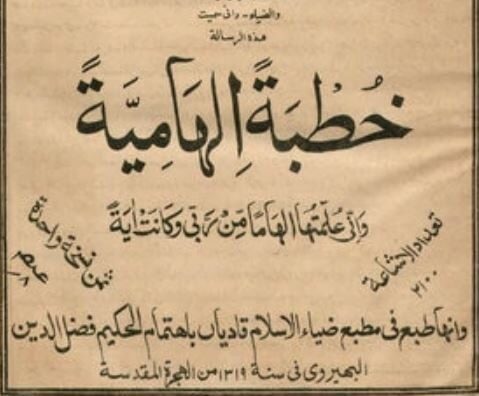 والضياء - وانى سميت
هذه الرسالة
خُطْبَةً اِلْهَامِيَّةً
وَاِنّى عُلِّمْتُهَا اِلْهَامًا مِّنْ رَبّى وَكَانَتْ اٰيَةً
تعداد الاشاعة
٢١٠٠
ثمن نسخة واحدة
وانها طبع فى مطبع ضياء الاسلام قاديان باهتمام الحكيم فضل الدين
البهيروى فى سنة ١٣١٩ من الهجرة المقدسة